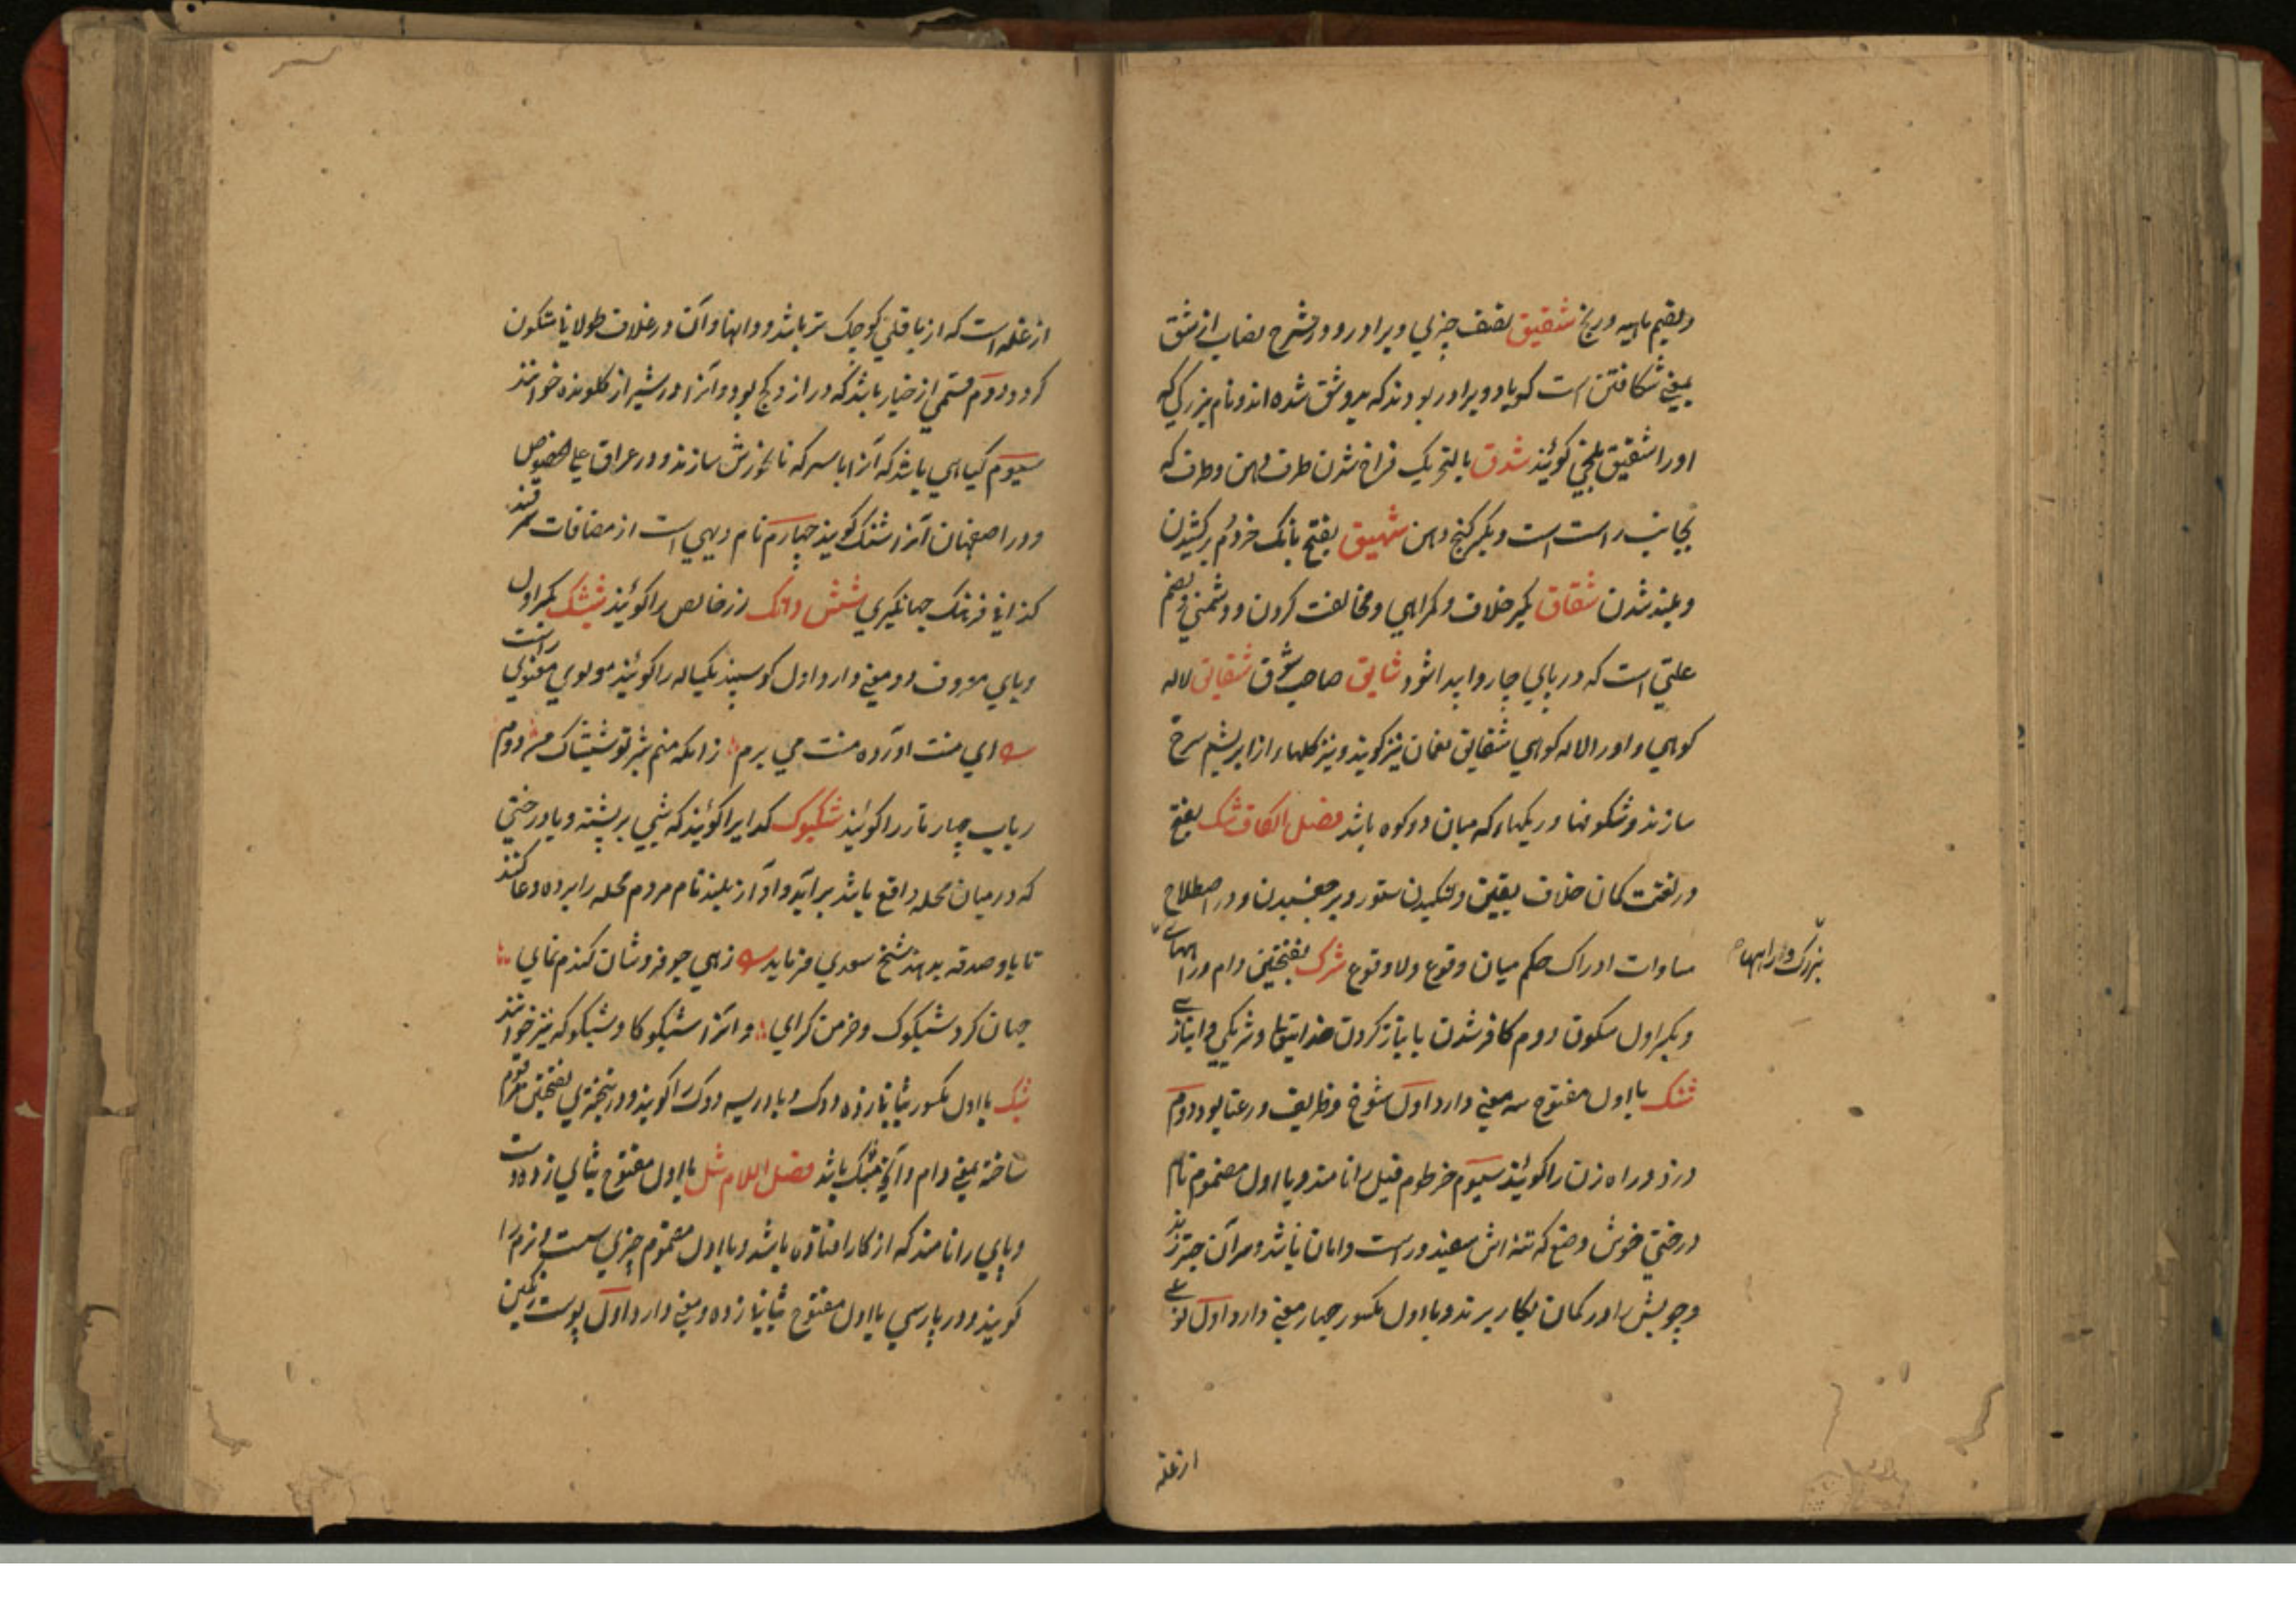 وبقیم ماهیه دریخ شقیق نصف چیزی و برادر و در شرح نصاب از شق
بمعنی شکافتن است گویا دو برادر بودند که بدو شق شده اند و نام بزرگی که
او را شقیق بلخی گویند شدق بالتحریک فراخ شدن طرف دهن و طرف که
بجانب راست است و بکسر کنج دهن شهیق بفتح بانک خر دُم برکشیدن
و بلند شدن شقاق بکسر خلاف و کمراهی و مخالفت کردن و دشمنی و بضم
علتی است که در پای چاروا پیدا شود شایق صاحب شوق شقایق لاله
کوهی و او را لاله کوهی شقایق نعمان نیز گویند و نیز گلها که از ابریشم سرخ
سازند و شکوفها و ریگها که میان دو کوه باشد فصل الکاف شک بفتح
در لغت گمان خلاف یقین و لنگیدن ستور و بر چفسیدن و در اصطلاح
مساوات ادراک حکم میان وقوع و لا وقوع شرک بفتحتین دام و راههای
بزرگ و راهها
و بکسر اول سکون دوم کافر شدن یا انباز کردن خدایتعالی و شریکی و انبازی
شنک با اول مفتوح سه معنی دارد اول شوخ و ظریف و رعنا بود دوم
دزد و راه زن را گویند سیوم خرطوم فیل را نامند و با اول مضموم نام
درختی خوش وضع که تنه اش سفید و راست و امان باشد و سر آن چتر زند
و چوبش را در کمان بکار برند و با اول مکسور چهار معنی دارد اول نوعی
از غله
از غله است که از باقلی کوچک تر باشد و دانها و آن در غلاف طولانی متکون
گردد دوم قسمی از خیار باشد که دراز و کج بود و آنرا در شیراز کلونده خوانند
سیوم گیاهی باشد که آنرا با سرکه نانخورش سازند و در عراق علی الخصوص
و در اصفهان آنرا شنک گویند چهارم نام دیهی است از مضافات سمرقند
کذا فی فرهنگ جهانگیری شش دانک زر خالص را گویند شیشک بکسر اول
و یای معروف دو معنی دارد اول گوسپند یکساله را گویند مولوی معنوی راست
ای منت آورده منت می برم زانکه منم شیر تو شیشاک من دوم
رباب چهار تار را گویند شبکوک گدایرا گویند که شبی بر پشته و یا درختی
که در میان محله واقع باشد برآید و آواز بلند نام مردم محله را برده دعا کند
تا باو صدقه بدهند شیخ سعدی فرماید زهی جو فروشان گندم نمای
جهان گرد شبکوک و خرمن گرای و آنرا شبکوکا و شبکوکه نیز خوانند
شبک با اول مکسور بثانی زده دوک و بادریسه دوک را گویند و در پنجتری بفتحتین مرقوم
ساخته بمعنی دام و آنچه مشبک باشد فصل اللام شل با اول مفتوح بثانی زده دست
و پای را نامند که از کار افتاده باشد و با اول مضموم چیزی سست و نرم را
گویند و در پارسی با اول مفتوح بثانی زده دو معنی دارد اول پوست رنگین